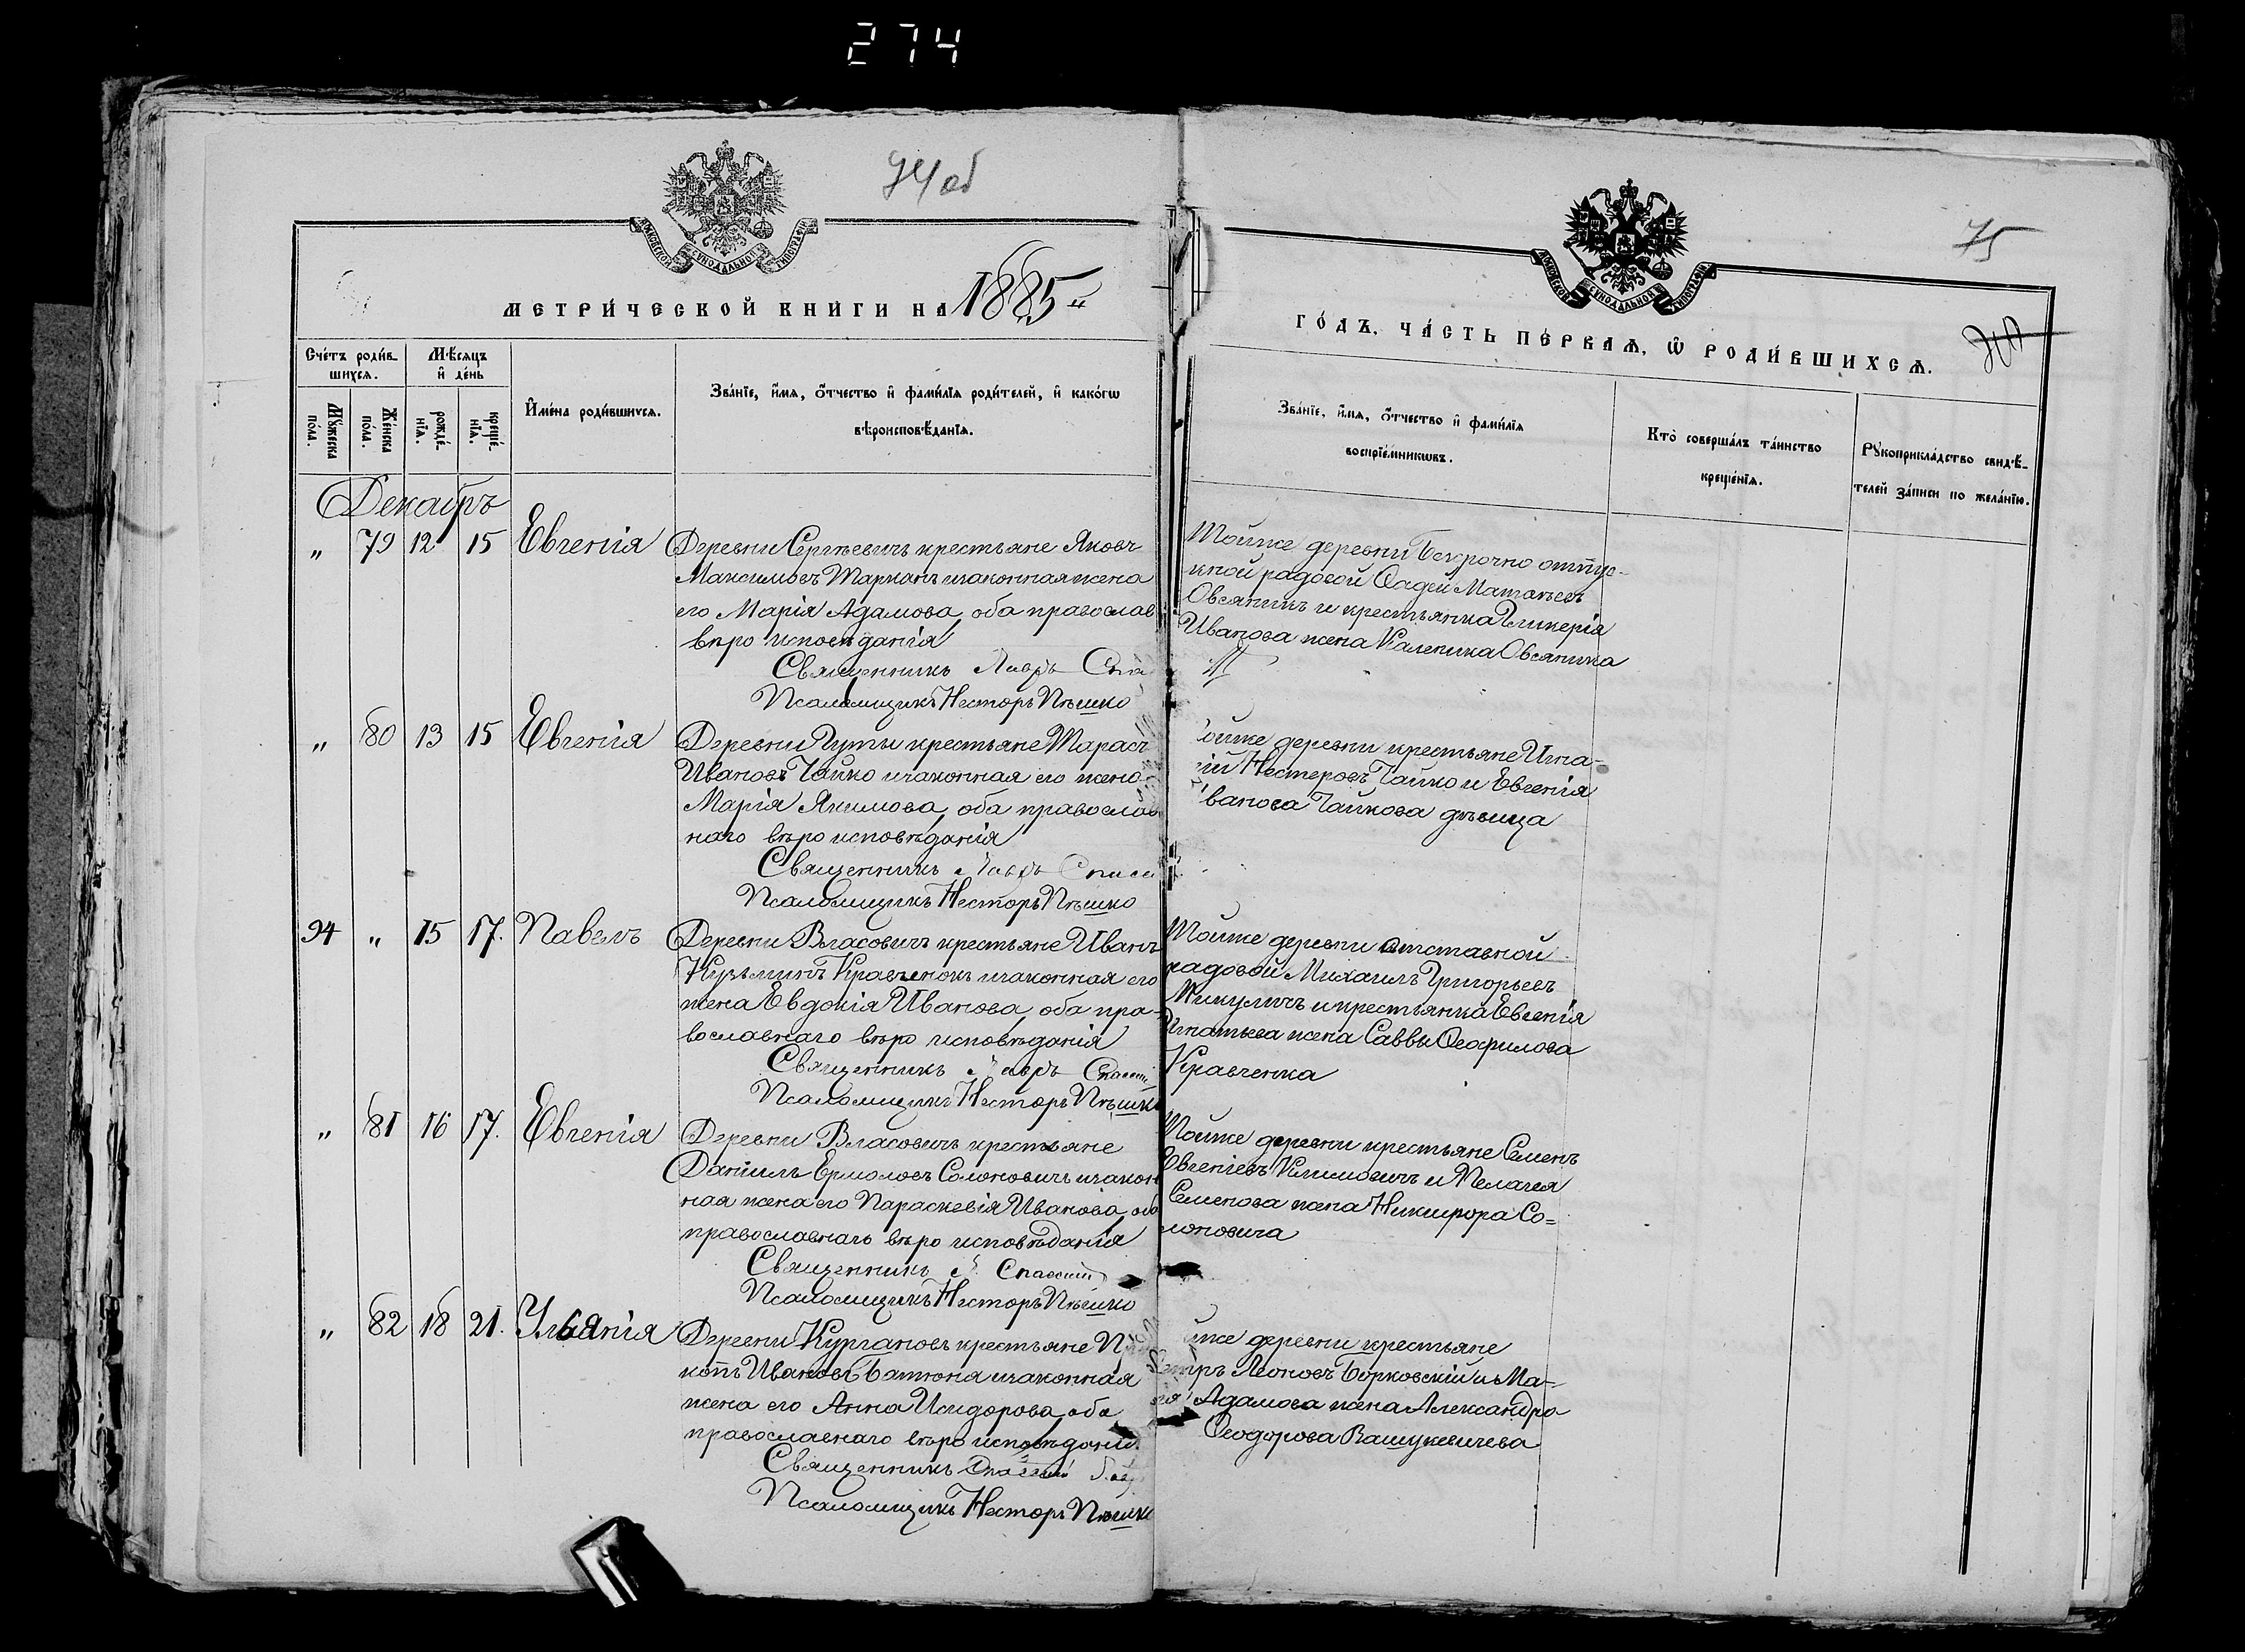 274
74 об
75
МОСКОВСКОЙ СѴНОДАЛЬНОЙ ТИПОГРАФІИ
МОСКОВСКОЙ СѴНОДАЛЬНОЙ ТИПОГРАФІИ
МЕТРИ́ЧЕСКОЙ КНИ́ГИ НА 1885 „
ГО́ДЪ, ЧА́СТЬ ПЕ́РВАѦ, Ѡ҆ РОДИ́ВШИХСѦ.
Сче́тъ роди́в-
шихсѧ.
Мꙋ́жеска по́ла.
Же́нска по́ла.
Мѣ́сяцъ и҆ де́нь
рожде́-нїѧ.
креще́-нїѧ.
И҆мена̀ роди́вшихсѧ.
Зва́нїе, и҆́мѧ, ѻ҆́тчество и҆ фами́лїѧ роди́телей, и҆ како́гѡ
вѣроисповѣ́данїѧ.
Зва́нїе, и҆́мѧ, ѻ҆́тчество и҆ фами́лїѧ
воспрїе́мникѡвъ.
Кто̀ соверша́лъ та́инство
креще́нїѧ.
Рꙋкоприкла́дство свидѣ́-
телей за́писи по жела́нїю.
Декабрь
„ 79 12 15 Евгенія
Деревни Сергѣевичъ крестьяне Яковъ
Максимовъ Таркань и законная жена
его Марія Адамова, оба православ
вѣроисповѣданія
Священникъ Лавръ Спа
Псаломщикъ Несторъ Пѣшко
Тойже деревни безсрочно отпус-
кной рядовой Фадей Матвѣевъ
Овсяникъ и крестьянка Гликерія
Иванова жена Каленика Овсяника
„ 80 13 15 Евгенія
Деревни Гуты крестьяне Тарасъ
Ивановъ Чайко и законная его жена
Марія Якимова, оба православ
наго вѣроисповѣданія
Священникъ Лавръ Спасс
Псаломщикъ Несторъ Пѣшко
ойже деревни крестьяне Игна-
ій Нестеровъ Чайко и Евгенія
ванова Чайкова дѣвица
94 „ 15 17. Павелъ
Деревни Власовичъ крестьяне Иванъ
Кузьминъ Кравченокъ и законная его
жена Евдокія Иванова, оба пра-
вославнаго вѣроисповѣданія
Священникъ Лавръ Спасскі
Псаломщикъ Несторъ Пѣшко
Тойже деревни отставной
рядовой Михаилъ Григорьевъ
Микуличъ и крестьянка Евгенія
Игнатьева жена Саввы Ѳеофилова
Кравченка
„ 81 16 17. Евгенія
Деревни Власовичъ крестьяне
Даніилъ Ермоловъ Солоновичъ и закон
ная жена его Параскевія Иванова, оба
православнаго вѣроисповѣданія
Священникъ Л. Спасскій
Псаломщикъ Несторъ Пѣшко
Тойже деревни крестьяне Семенъ
Евгеніевъ Климовичъ и Пелагея
Семенова жена Никифора Со=
лоновича
„ 82 18 21. Ульянія
Деревни Кургановъ крестьяне Про
копъ Ивановъ Батюня и законная
жена его Анна Исидорова, оба
православнаго вѣроисповѣдані
Священникъ Спасскій Лавр
Псаломщикъ Несторъ Пѣшко
йже деревни крестьяне
Петръ Леоновъ Борковскій и Ма-
рія Адамова жена Александра
Ѳеодорова Вашукевичева